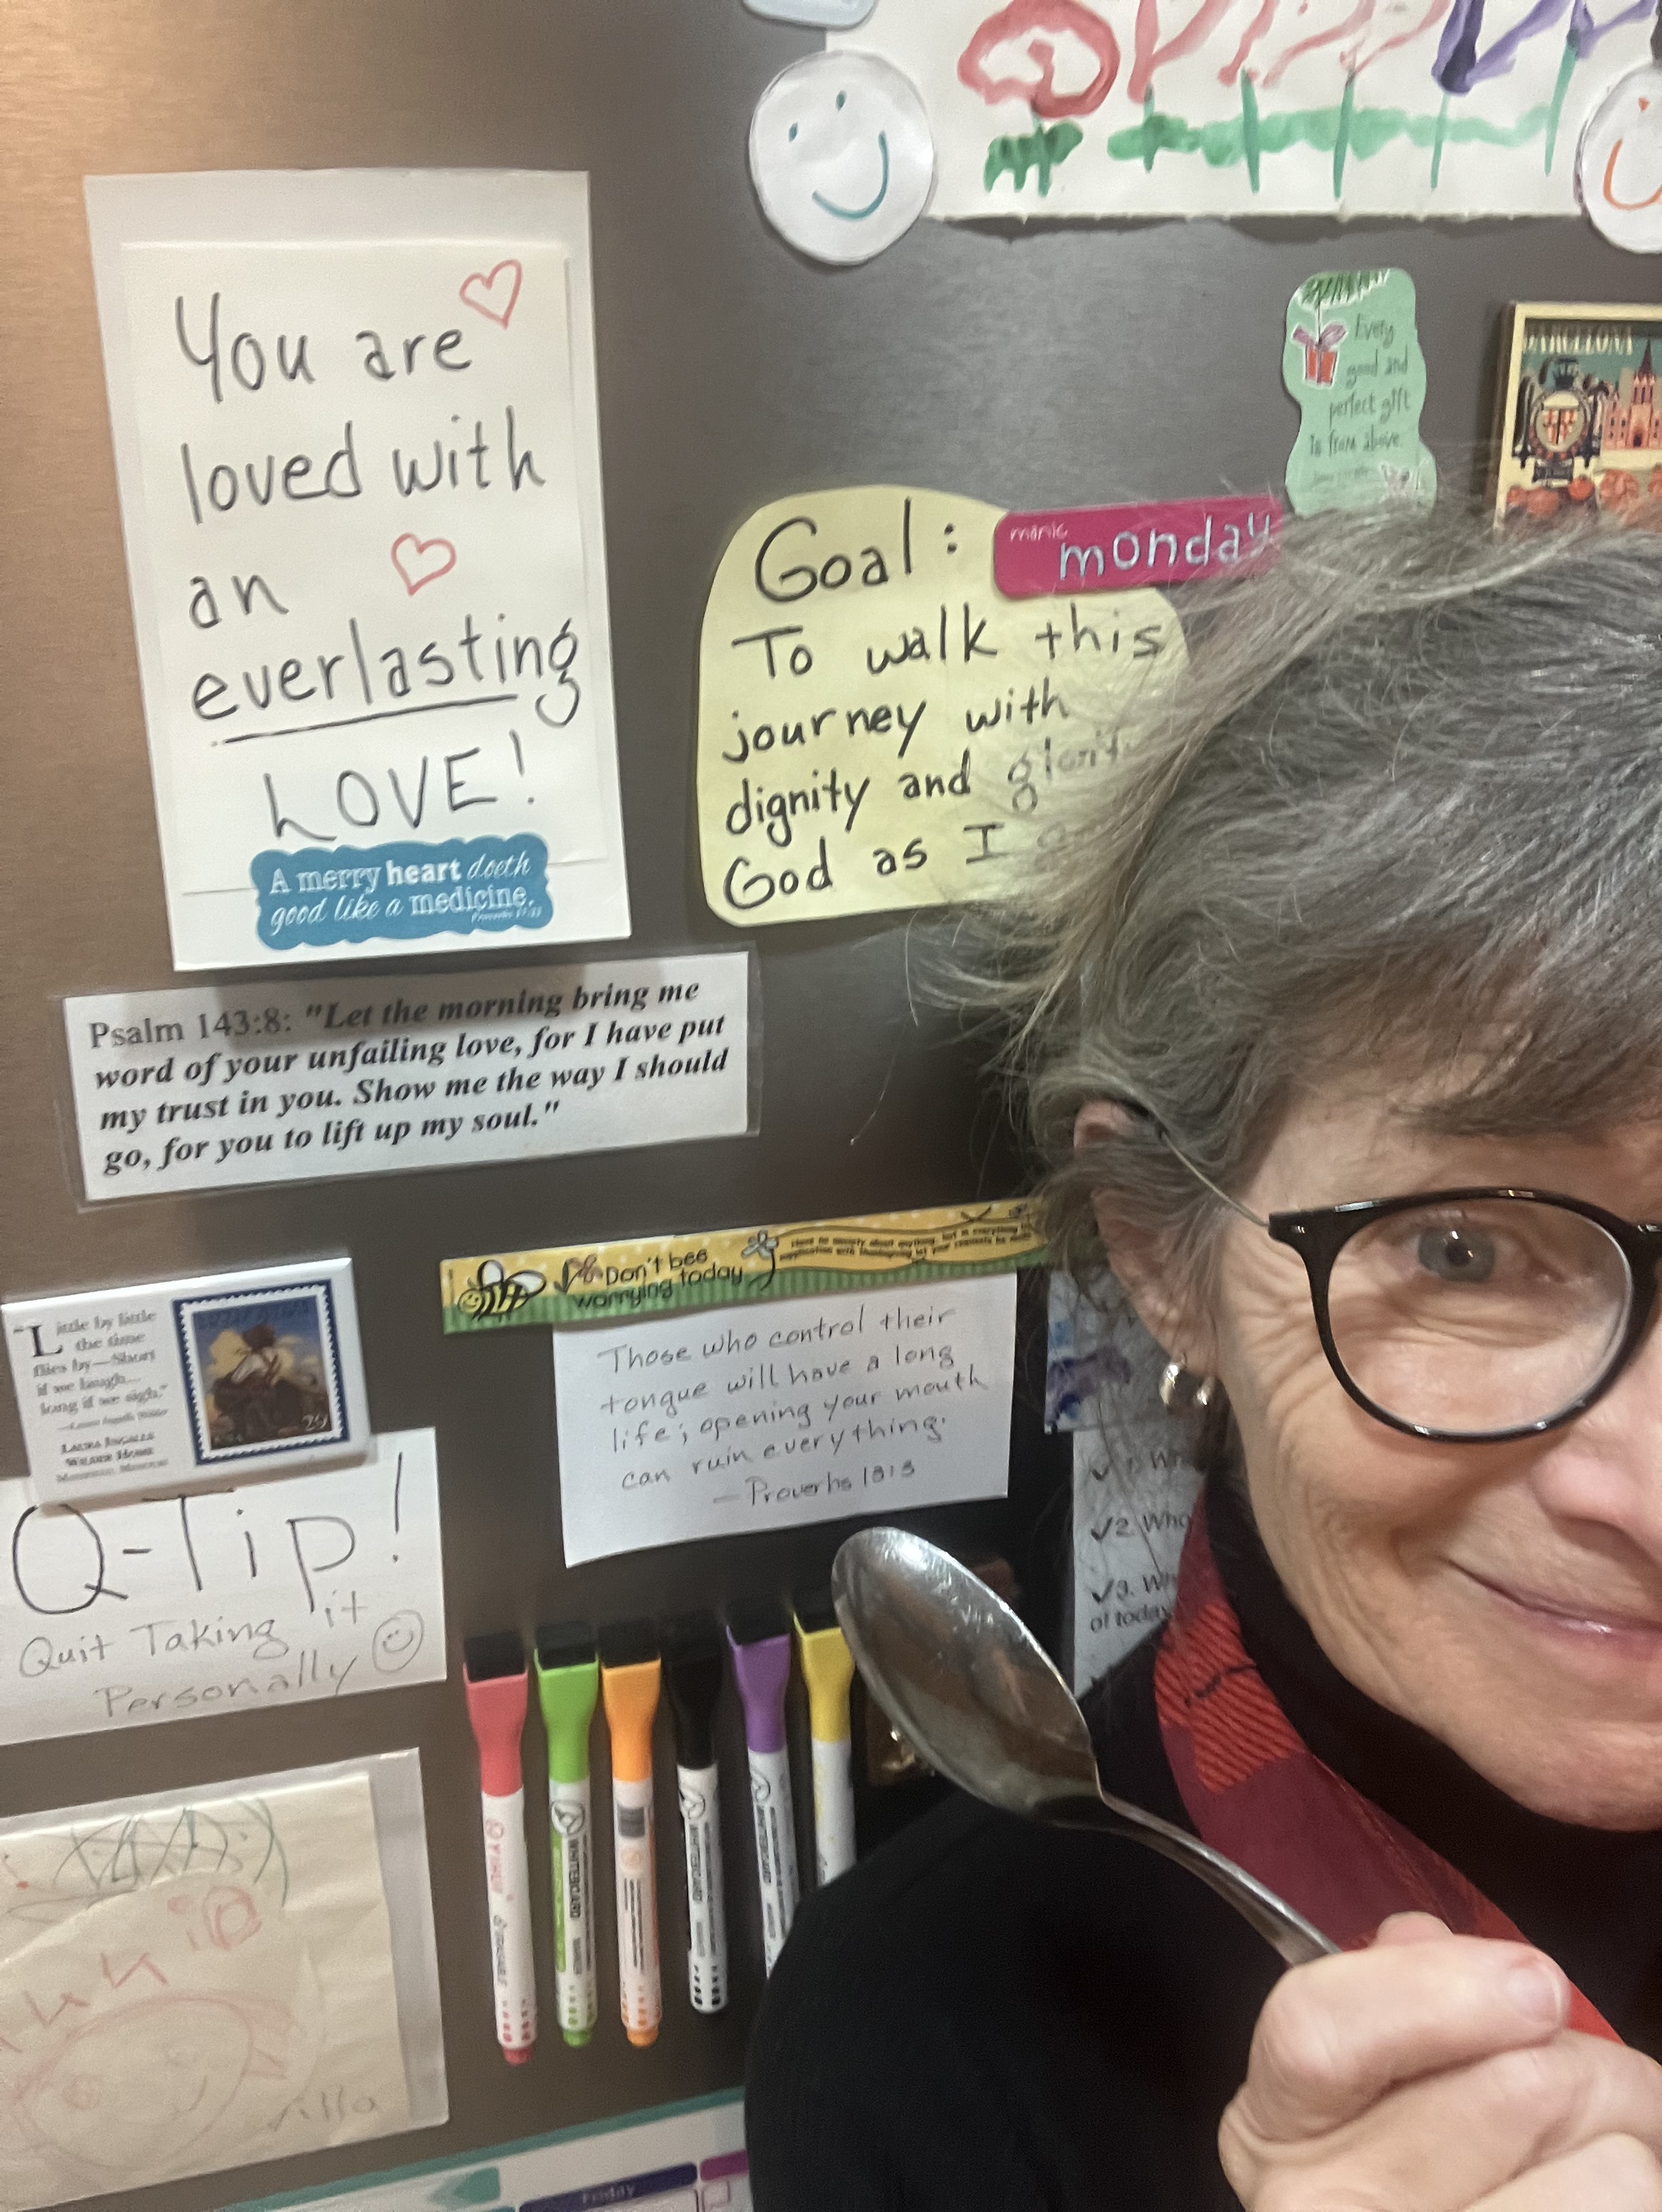 You are
loved with
an
everlasting
LOVE!
A merry heart doeth
good like a medicine.
Every
good and
perfect gift
is from above.
BARCELONA
Goal:
manic
monday
To walk this
journey with
dignity and
God as I
Psalm 143:8: "Let the morning bring me
word of your unfailing love, for I have put
my trust in you. Show me the way I should
go, for you to lift up my soul."
Don't bee
worrying today
"Little by little
the time
flies by—Short
if we laugh...
long if we sigh."
—Laura Ingalls Wilder
LAURA INGALLS
WILDER HOME
29
Those who control their
tongue will have a long
life; opening your mouth
can ruin everything.
— Proverbs 13:3
Q-Tip!
Quit Taking it
Personally
2. Who
of today
WHITEBOARD
WHITEBOARD
WHITEBOARD
Friday